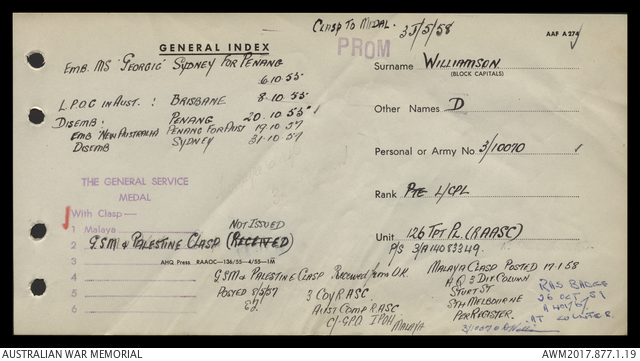 CLASP TO MEDAL. 31/5/58
AAF A 274
GENERAL INDEX
PROM
EMB. MS "GEORGIC" SYDNEY FOR PENANG
6.10.55
L.P.O.C IN AUST. : BRISBANE 8.10.55
DISEMB : PENANG 20.10.55
EMB 'NEW AUSTRALIA' PENANG FOR AUST 19.10.57
DISEMB SYDNEY 31.10.57
Surname WILLIAMSON
(BLOCK CAPITALS)
Other Names D
Personal or Army No. 3/10070
Rank PTE L/CPL
Unit 126 TPT PL. (RAASC)
P/S 3/A14083349.
THE GENERAL SERVICE
MEDAL
With Clasp—
1 Malaya NOT ISSUED
2 G.S.M & PALESTINE CLASP (RECEIVED)
3
AHQ Press RAAOC—136/55—4/55—1M
4 G.S.M & PALESTINE CLASP RECEIVED FROM U.K.
5 POSTED 8/5/57 3 COY RASC
6 COMP RASC
C/- GPO IPOH, MALAYA
MALAYA CLASP POSTED 17.1.58
H.Q 3 DIV. COLUMN
STURT ST
STH MELBOURNE
PER REGISTER.
3/10070
RAS BADGE
26 OCT
AT COUNTER
AUSTRALIAN WAR MEMORIAL
AWM2017.877.1.19